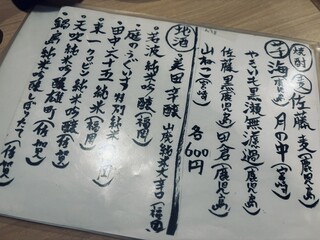 焼酎 麦 佐藤 麦(鹿児島)
芋 海(鹿児島) 月の中(宮崎)
やきいも黒瀬 無濾過(鹿児島)
佐藤 黒(鹿児島) 田倉(鹿児島)
山ねこ(宮崎) 各600円
地酒
・美田 辛醸 山廃純米大辛口(福岡)
・若波 純米吟醸(福岡)
・庭のうぐいす 特別純米(福岡)
・田中六十五 純米(福岡)
・天吹 純米吟醸 雄町(佐賀)
・鍋島 純米吟醸